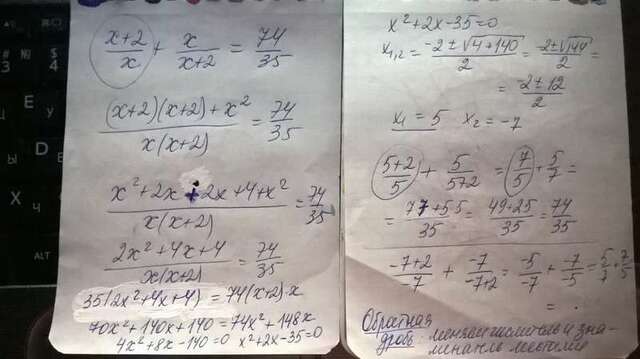 (x+2)/x + x/(x+2) = 74/35
((x+2)(x+2)+x²)/(x(x+2)) = 74/35
(x²+2x+2x+4+x²)/(x(x+2)) = 74/35
(2x²+4x+4)/(x(x+2)) = 74/35
35(2x²+4x+4) = 74(x+2)·x
70x²+140x+140 = 74x²+148x
4x²+8x-140=0 x²+2x-35=0
x²+2x-35=0
x₁,₂ = (-2±√(4+140))/2 = (-2±√144)/2 =
= (-2±12)/2
x₁ = 5 x₂ = -7
(5+2)/5 + 5/(5+2) = 7/5 + 5/7 =
= (7·7+5·5)/35 = (49+25)/35 = 74/35
(-7+2)/-7 + -7/(-7+2) = -5/-7 + -7/-5 = 5/7 + 7/5
= ·
Обратная
дробь: меняем числитель и зна-
менатель местами
# 3
№ 4
$
Е
Ы
D
Х
Ч